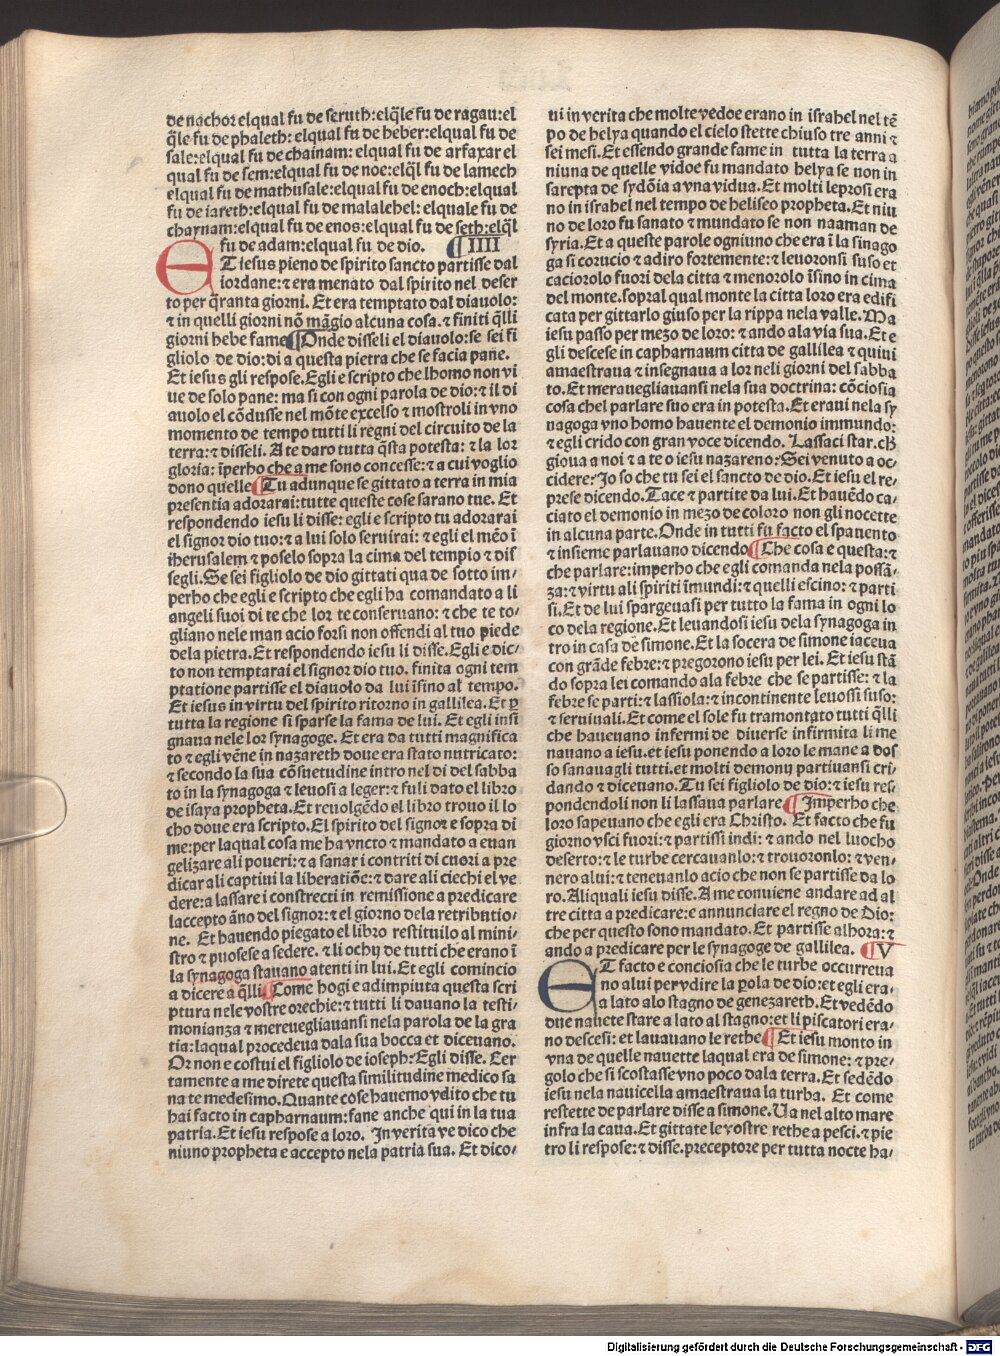 de nachor elqual fu de seruth:elq̃le fu de ragau:el
q̃le fu de phaleth: elqual fu de heber:elqual fu de
sale:elqual fu de chainam: elqual fu de arfaxar el
qual fu de sem:elqual fu de noe:elq̃l fu de lamech
elqual fu de mathusale:elqual fu de enoch:elqual
fu de iareth:elqual fu de malalehel: elquale fu de
chaynam:elqual fu de enos:elqual fu de seth:elq̃l
fu de adam:elqual fu de dio. ¶ IIII
ET iesus pieno de spirito sancto partisse dal
iordane: ⁊ era menato dal spirito nel deser
to per q̃ranta giorni. Et era temptato dal diauolo:
⁊ in quelli giorni nõ mãgio alcuna cosa. ⁊ finiti q̃lli
giorni hebe fame ¶ Onde disseli el diauolo: se sei fi
gliolo de dio: di a questa pietra che se facia pane.
Et iesus gli respose. Egli e scripto che lhomo non vi
ue de solo pane: ma si con ogni parola de dio: ⁊ il di
auolo el cõdusse nel mõte excelso ⁊ mostroli in vno
momento de tempo tutti li regni del circuito de la
terra: ⁊ disseli. A te daro tutta q̃sta potesta: ⁊ la lor
gloria: ĩperho che a me sono concesse: ⁊ a cui voglio
dono quelle ¶ Tu adunque se gittato a terra in mia
presentia adorarai: tutte queste cose sarano tue. Et
respondendo iesu li disse: egli e scripto tu adorarai
el signor dio tuo: ⁊ a lui solo seruirai: ⁊ egli el mẽo ĩ
iherusalem ⁊ poselo sopra la cima del tempio ⁊ dis
segli. Se sei figliolo de dio gittati qua de sotto im/
perho che egli e scripto che egli ha comandato a li
angeli suoi di te che lor te conseruano: ⁊ che te to/
gliano nele man acio forsi non offendi al tuo piede
de la pietra. Et respondendo iesu li disse. Egli e dic/
to non temptarai el signor dio tuo. finita ogni tem
ptatione partisse el diauolo da lui ĩsino al tempo.
Et iesus in virtu del spirito ritorno in gallilea. Et ꝑ
tutta la regione si sparse la fama de lui. Et egli insi
gnaua nele lor synagoge. Et era da tutti magnifica
to ⁊ egli vẽne in nazareth doue era stato nutricato:
⁊ secondo la sua cõsuetudine intro nel di del sabba
to in la synagoga ⁊ leuosi a leger: ⁊ fuli dato el libro
de isaya propheta. Et reuolgẽdo el libro trouo il lo
cho doue era scripto. El spirito del signor e sopra di
me: per laqual cosa me ha vncto ⁊ mandato a euan
gelizare ali poueri: ⁊ a sanar i contriti di cuori a pre
dicar ali captiui la liberatiõe: ⁊ dare ali ciechi el ve
dere: a lassare i constrecti in remissione a predicare
laccepto ãno del signor: ⁊ el giorno dela retributio/
ne. Et hauendo piegato el libro restituilo al mini/
stro ⁊ puosese a sedere. ⁊ li ochij de tutti che erano ĩ
la synagoga stauano atenti in lui. Et egli comincio
a dicere a q̃lli ¶ Come hogi e adimpiuta questa scri
ptura nele vostre orechie: ⁊ tutti li dauano la testi/
monianza ⁊ mereuegliauansi nela parola de la gra
tia: laqual procedeua dala sua bocca et diceuano.
Or non e costui el figliolo de ioseph: Egli disse. Cer
tamente a me direte questa similitudine medico sa
na te medesimo. Quante cose hauemo vdito che tu
hai facto in capharnaum: fane anche qui in la tua
patria. Et iesu respose a loro. In verita ve dico che
niuno propheta e accepto nela patria sua. Et dico/
ui in verita che molte vedoe erano in israhel nel tẽ
po de helya quando el cielo stette chiuso tre anni ⁊
sei mesi. Et essendo grande fame in tutta la terra a
niuna de quelle vidoe fu mandato helya se non in
sarepta de sydõia a vna vidua. Et molti leprosi era
no in israhel nel tempo de heliseo propheta. Et niu
no de loro fu sanato ⁊ mundato se non naaman de
syria. Et a queste parole ogniuno che era ĩ la sinago
ga si corucio ⁊ adiro fortemente: ⁊ leuoronsi suso et
caciorolo fuori dela citta ⁊ menorolo ĩsino in cima
del monte. sopral qual monte la citta loro era edifi
cata per gittarlo giuso per la rippa nela valle. Ma
iesu passo per mezo de loro: ⁊ ando ala via sua. Et e
gli descese in capharnaum citta de gallilea ⁊ quiui
amaestraua ⁊ insegnaua a lor neli giorni del sabba
to. Et merauegliauansi nela sua doctrina: cõciosia
cosa chel parlare suo era in potesta. Et eraui nela sy
nagoga vno homo hauente el demonio immundo:
⁊ egli crido con gran voce dicendo. Lassaci star. ch̃
gioua a noi ⁊ a te o iesu nazareno: Sei venuto a oc/
cidere: Jo so che tu sei el sancto de dio. Et iesu el re/
prese dicendo. Tace ⁊ partite da lui. Et hauẽdo ca/
ciato el demonio in mezo de coloro non gli nocette
in alcuna parte. Onde in tutti fu facto el spauento
⁊ insieme parlauano dicendo ¶ Che cosa e questa: ⁊
che parlare: imperho che egli comanda nela possã/
za: ⁊ virtu ali spiriti ĩmundi: ⁊ quelli escino: ⁊ parti
si. Et de lui spargeuasi per tutto la fama in ogni lo
co dela regione. Et leuandosi iesu dela synagoga in
tro in casa de simone. Et la socera de simone iaceua
con grãde febre: ⁊ pregorono iesu per lei. Et iesu stã
do sopra lei comando ala febre che se partisse: ⁊ la
febre se parti: ⁊ lassiola: ⁊ incontinente leuossi suso:
⁊ seruiuali. Et come el sole fu tramontato tutti q̃lli
che haueuano infermi de diuerse infirmita li me
nauano a iesu. et iesu ponendo a loro le mane a dos
so sanauagli tutti. et molti demonij partiuansi cri/
dando ⁊ diceuano. Tu sei figliolo de dio: ⁊ iesu res/
pondendoli non li lassaua parlare ¶ Imperho che
loro sapeuano che egli era Christo. Et facto che fu
giorno vsci fuori: ⁊ partissi indi: ⁊ ando nel luocho
deserto: ⁊ le turbe cercauanlo: ⁊ trouoronlo: ⁊ ven/
nero alui: ⁊ teneuanlo acio che non se partisse da lo
ro. Aliquali iesu disse. A me conuiene andare ad al
tre citta a predicare: e annunciare el regno de Dio:
che per questo sono mandato. Et partisse alhora: ⁊
ando a predicare per le synagoge de gallilea. ¶ V
ET facto e conciosia che le turbe occurreua
no alui per vdire la ꝑola de dio: et egli era/
a lato alo stagno de genezareth. Et vedẽdo
due nauete stare a lato al stagno: et li piscatori era/
no descesi: et lauauano le rethe ¶ Et iesu monto in
vna de quelle nauette laqual era de simone: ⁊ pre/
golo che si scostasse vno poco dala terra. Et sedẽdo
iesu nela nauicella amaestraua la turba. Et come
restette de parlare disse a simone. Va nel alto mare
infra la caua. Et gittate le vostre rethe a pesci. ⁊ pie
tro li respose: ⁊ disse. preceptore per tutta nocte ha/
Digitalisierung gefördert durch die Deutsche Forschungsgemeinschaft - DFG